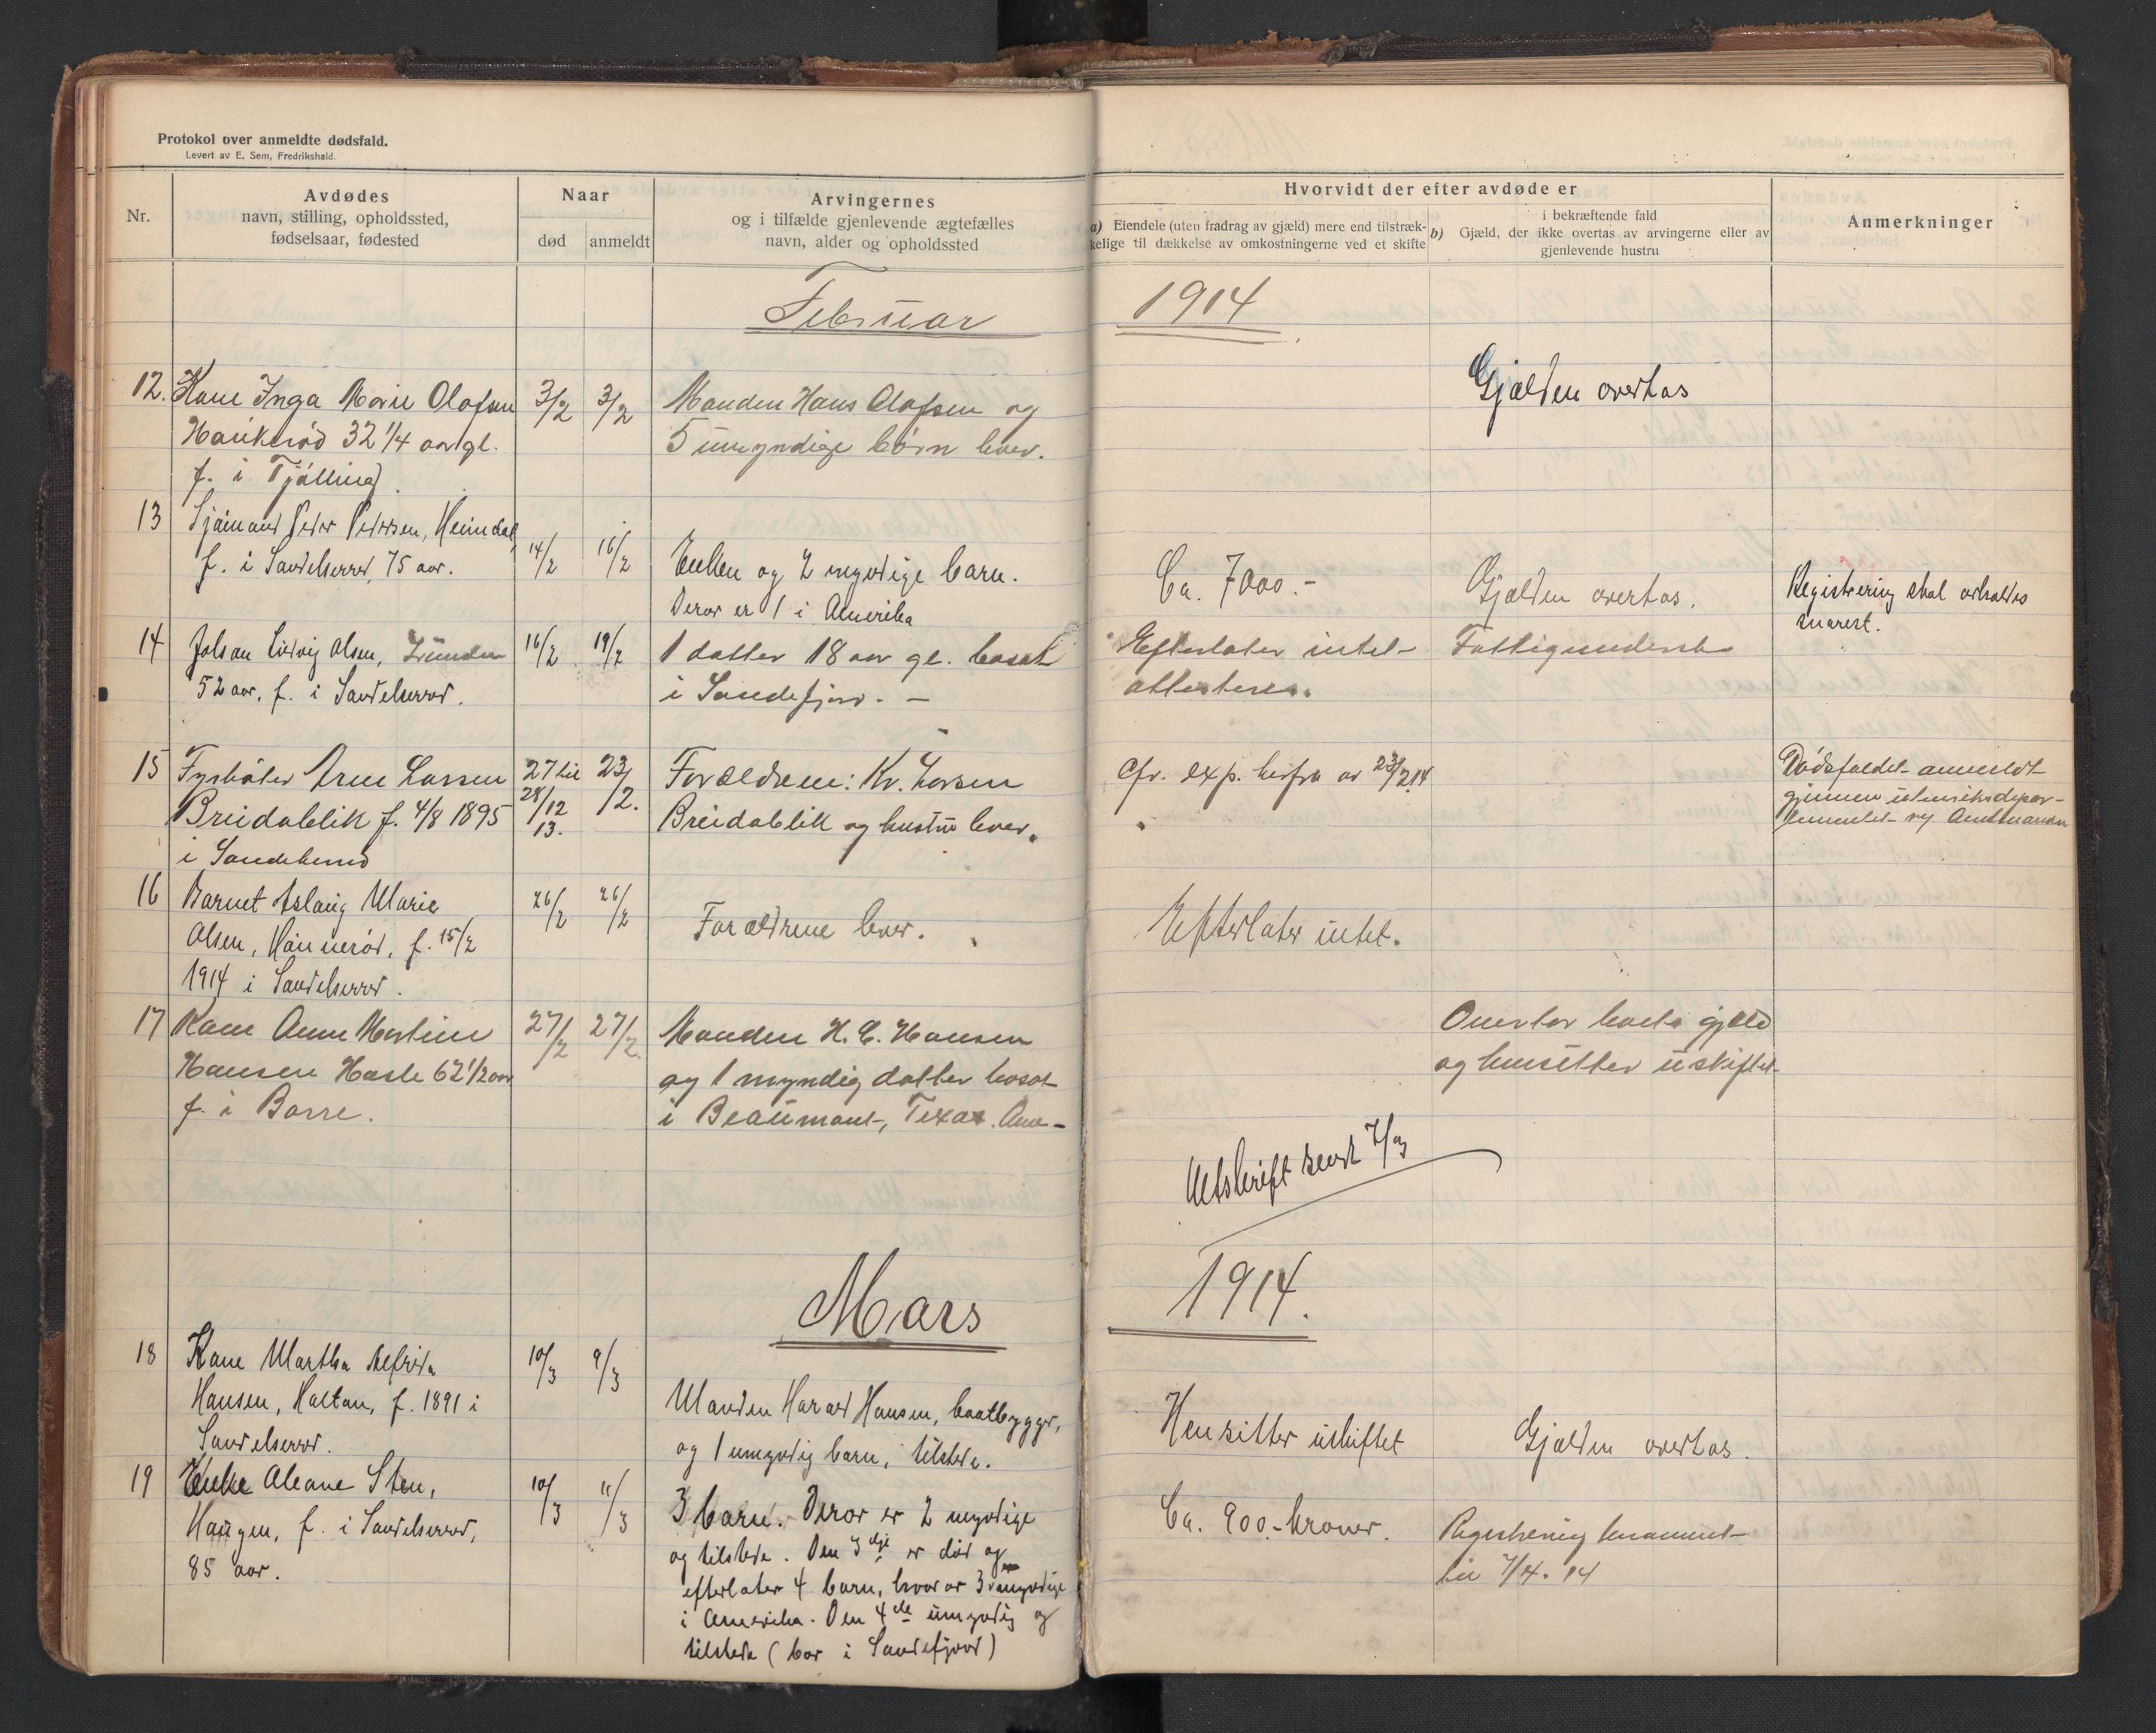 Protokol over anmeldte dødsfald.
Levert av E. Sem, Fredrikshald.
Nr.
Avdødes
navn, stilling, opholdssted,
fødselsaar, fødested
Naar
død
anmeldt
Arvingernes
og i tilfælde gjenlevende ægtefælles
navn, alder og opholdssted
Hvorvidt der efter avdøde er
a) Eiendele (uten fradrag av gjæld) mere end tilstræk-
kelige til dækkelse av omkostningerne ved et skifte
i bekræftende fald
b) Gjæld, der ikke overtas av arvingerne eller av
gjenlevende hustru
Anmerkninger
Februar
1914
12. Kone Inga Marie Olafsen
Haukerød 32 1/4 aar gl.
f. i Tjølling.
3/2
3/2
Manden Hans Olafsen og
5 umyndige børn lever.
Gjælden overtas
13 Sjømand Peder Pedersen, Heimdal,
f. i Sandeherred, 75 aar.
14/2
16/2
Enken og 2 myndige barn.
Derav er 1 i Amerika
Ca. 7000.-
Gjælden overtas.
Registrering skal avholdes
snarest.
14 Johan Ludvig Olsen,
52 aar, f. i Sandeherred.
16/2
19/2
1 datter 18 aar gl. bosat
i Sandefjord. —
Efterlater intet -
attesteres.
Fattigunderst.
15 Fyrbøter Arne Larsen
Breidablik f. 4/8 1895
i Sandeherred
27 til
28/12
13.
23/2.
Forældrene: Kr. Larsen
Breidablik og hustru lever.
Cfr. exp. herfra av 23/2 14
Dødsfaldet anmeldt
gjennem utenriksdepar-
tementet og Amtmanden
16 Barnet Aslaug Marie
Olsen, Haunerød, f. 15/2
1914 i Sandeherred.
26/2
26/2
Forældrene lever.
Efterlater intet.
17 Kone Anne Martine
Hansen Hasle 62 1/2 aar
f. i Borre.
27/2
27/2
Manden H. C. Hansen
og 1 myndig datter bosat
i Beaumont, Texas. Ame-
Overtar boets gjæld
og hensitter uskiftet
Utskrift sendt 7/3
Mars
1914.
18 Kone Martha Alfrida
Hansen, Haltan, f. 1891 i
Sandeherred.
10/3
9/3
Manden Harald Hansen, baatbygger,
og 1 umyndig barn, tilstede.
Hensitter uskiftet
Gjælden overtas.
19 Enke Aleane Sten,
Haugen, f. i Sandeherred,
85 aar.
10/3
11/3
3 barn. Derav er 2 myndige
og tilstede. Den 3dje er død og
efterlater 4 barn, hvorav 3 myndige
i Amerika. Den 4de umyndig og
tilstede (bor i Sandefjord)
Ca. 900.- kroner.
Registrering berammet
til 7/4. 14